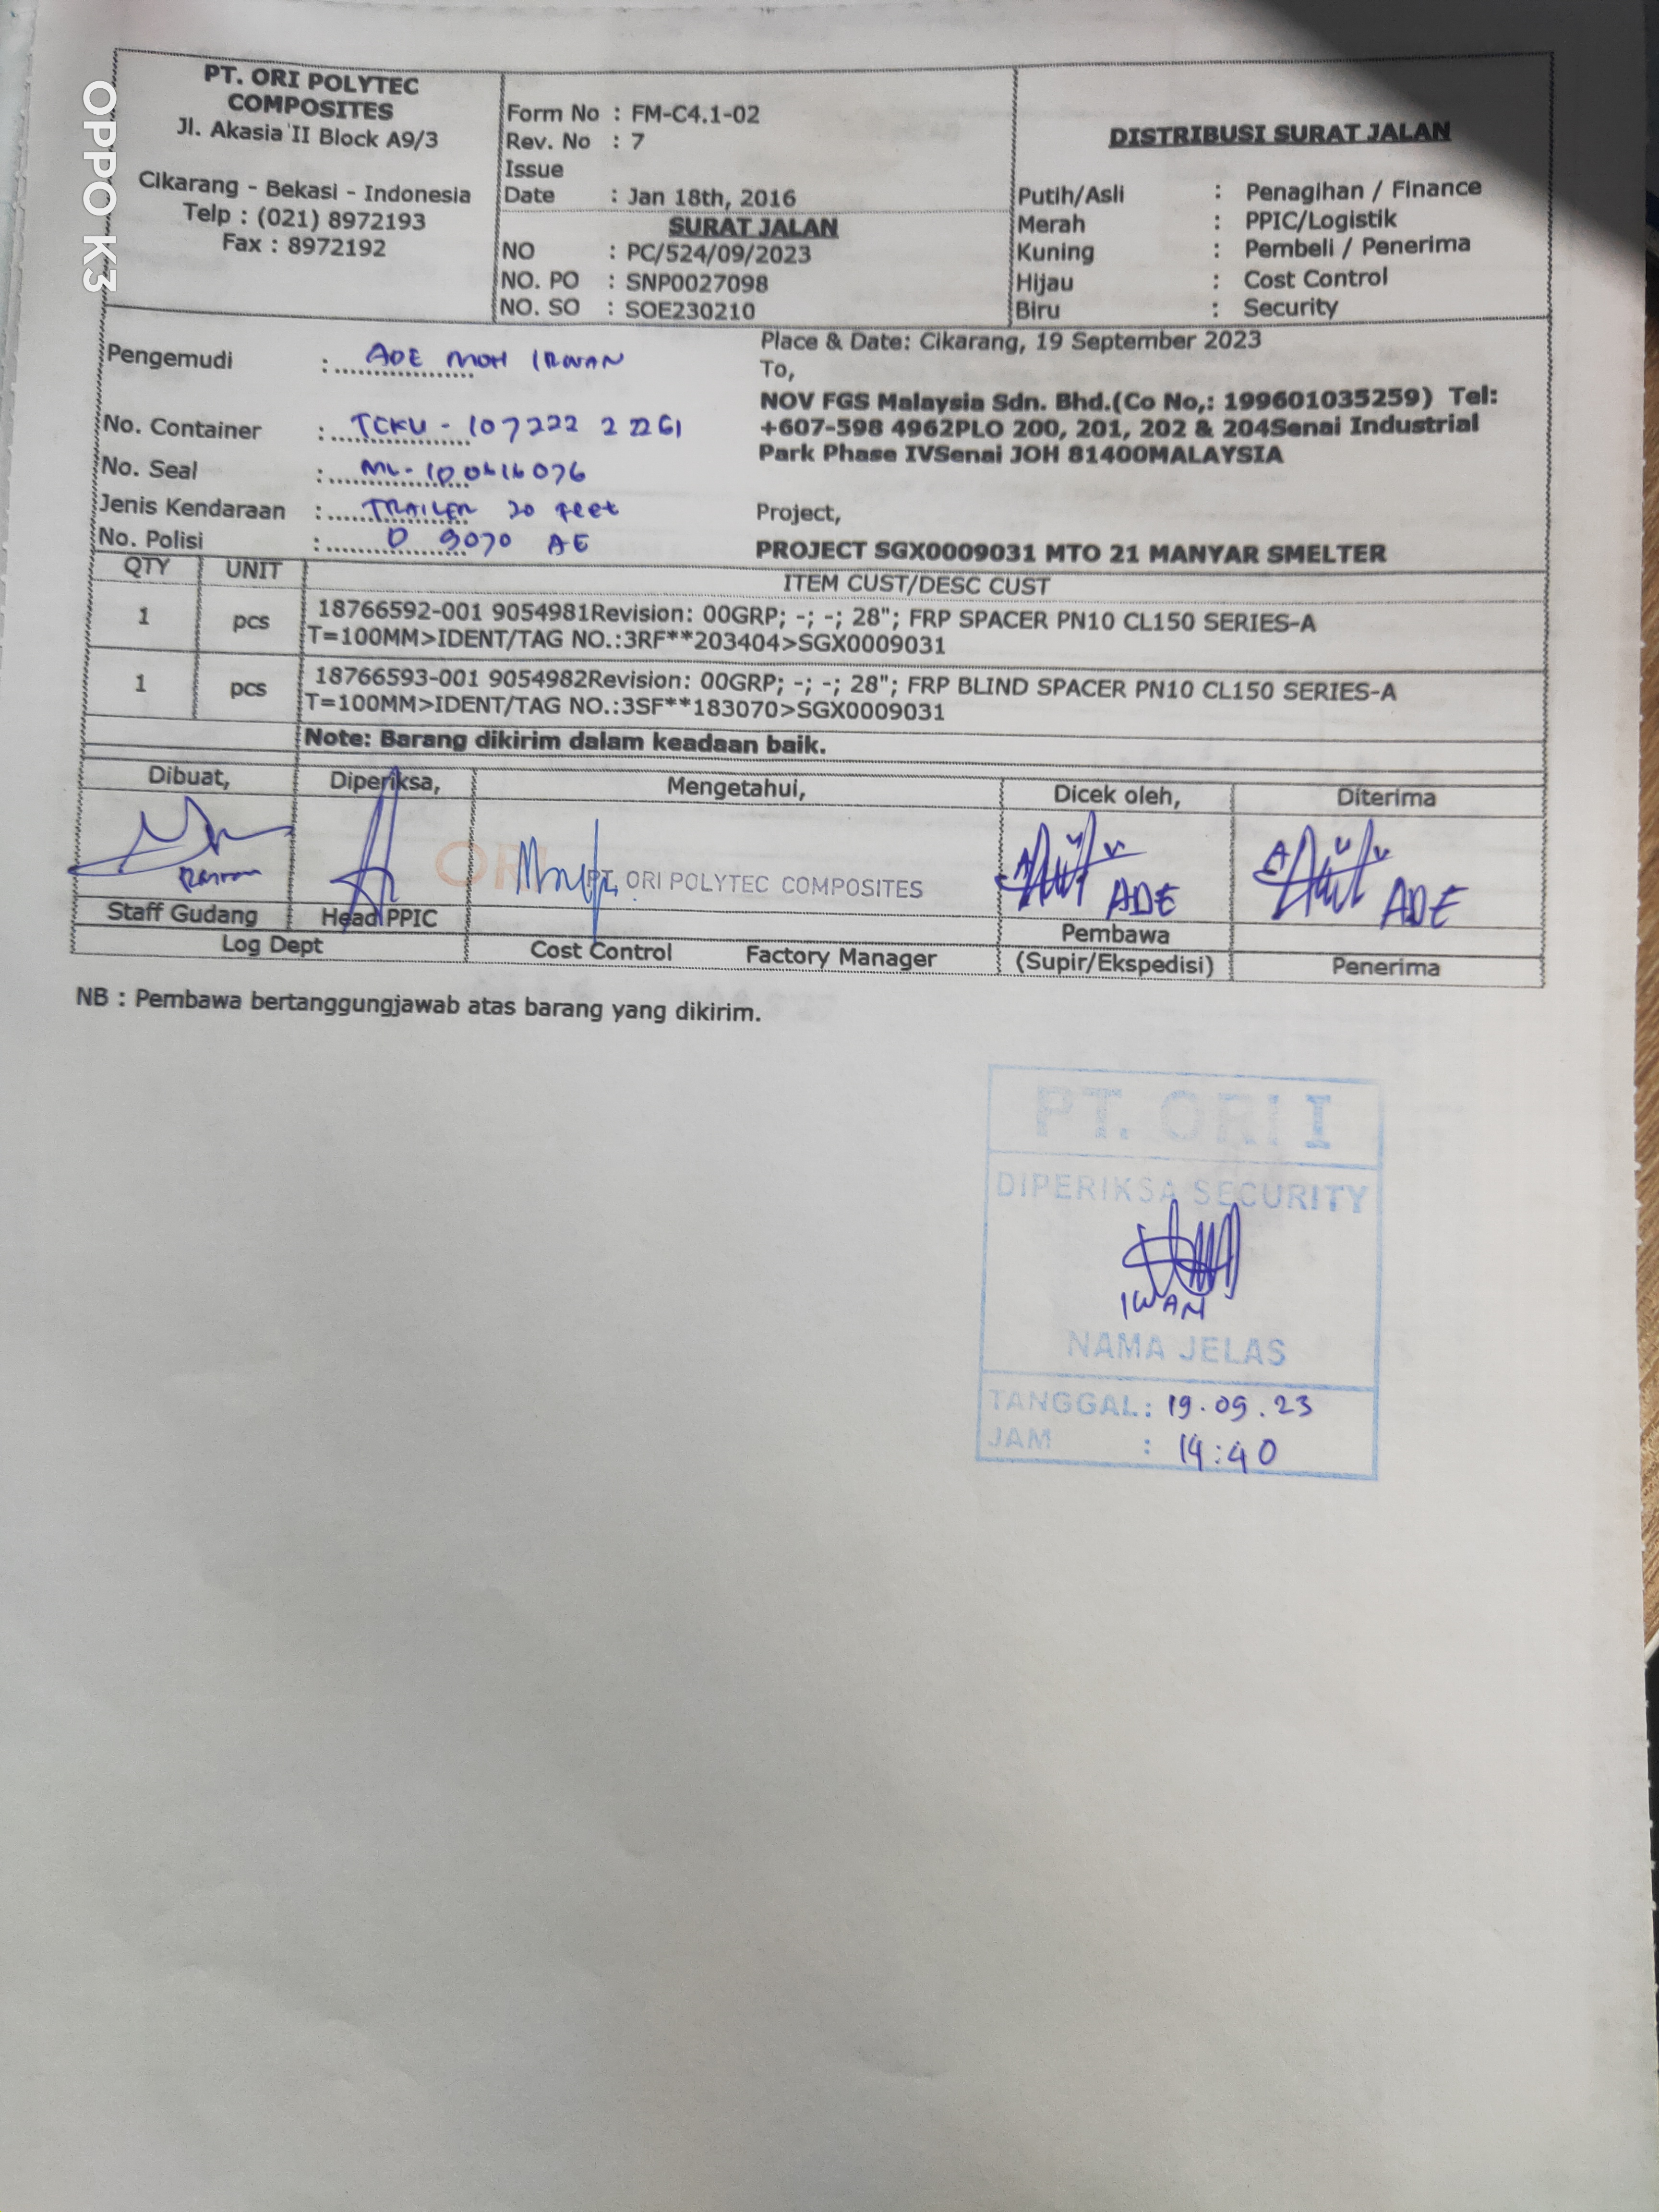 PT. ORI POLYTEC
COMPOSITES
Jl. Akasia II Block A9/3
Cikarang - Bekasi - Indonesia
Telp : (021) 8972193
Fax : 8972192
Form No : FM-C4.1-02
Rev. No : 7
Issue
Date : Jan 18th, 2016
SURAT JALAN
NO : PC/524/09/2023
NO. PO : SNP0027098
NO. SO : SOE230210
DISTRIBUSI SURAT JALAN
Putih/Asli : Penagihan / Finance
Merah : PPIC/Logistik
Kuning : Pembeli / Penerima
Hijau : Cost Control
Biru : Security
Pengemudi : ADE MOH IRWAN
No. Container : TCKU - 107222 2 22G1
No. Seal :
Jenis Kendaraan : TRAILER 20 feet
No. Polisi : D 9070 AE
Place & Date: Cikarang, 19 September 2023
To,
NOV FGS Malaysia Sdn. Bhd.(Co No,: 199601035259) Tel:
+607-598 4962PLO 200, 201, 202 & 204Senai Industrial
Park Phase IVSenai JOH 81400MALAYSIA
Project,
PROJECT SGX0009031 MTO 21 MANYAR SMELTER
QTY UNIT ITEM CUST/DESC CUST
1 pcs 18766592-001 9054981Revision: 00GRP; -; -; 28"; FRP SPACER PN10 CL150 SERIES-A
T=100MM>IDENT/TAG NO.:3RF**203404>SGX0009031
1 pcs 18766593-001 9054982Revision: 00GRP; -; -; 28"; FRP BLIND SPACER PN10 CL150 SERIES-A
T=100MM>IDENT/TAG NO.:3SF**183070>SGX0009031
Note: Barang dikirim dalam keadaan baik.
Dibuat, Diperiksa, Mengetahui, Dicek oleh, Diterima
ORI
PT. ORI POLYTEC COMPOSITES
ADE ADE
Staff Gudang Head PPIC Pembawa
Log Dept Cost Control Factory Manager (Supir/Ekspedisi) Penerima
NB : Pembawa bertanggungjawab atas barang yang dikirim.
PT. ORI I
DIPERIKSA SECURITY
IWAN
NAMA JELAS
TANGGAL : 19.09.23
JAM : 14:40
OPPO K3